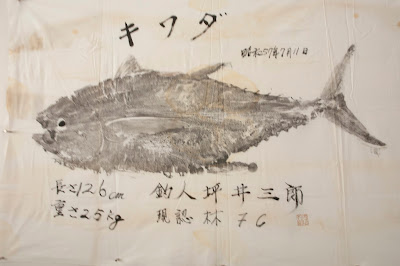 キワダ
昭和57年7月11日
長さ126cm
重さ25kg
釣人 坪井三郎
現認 林